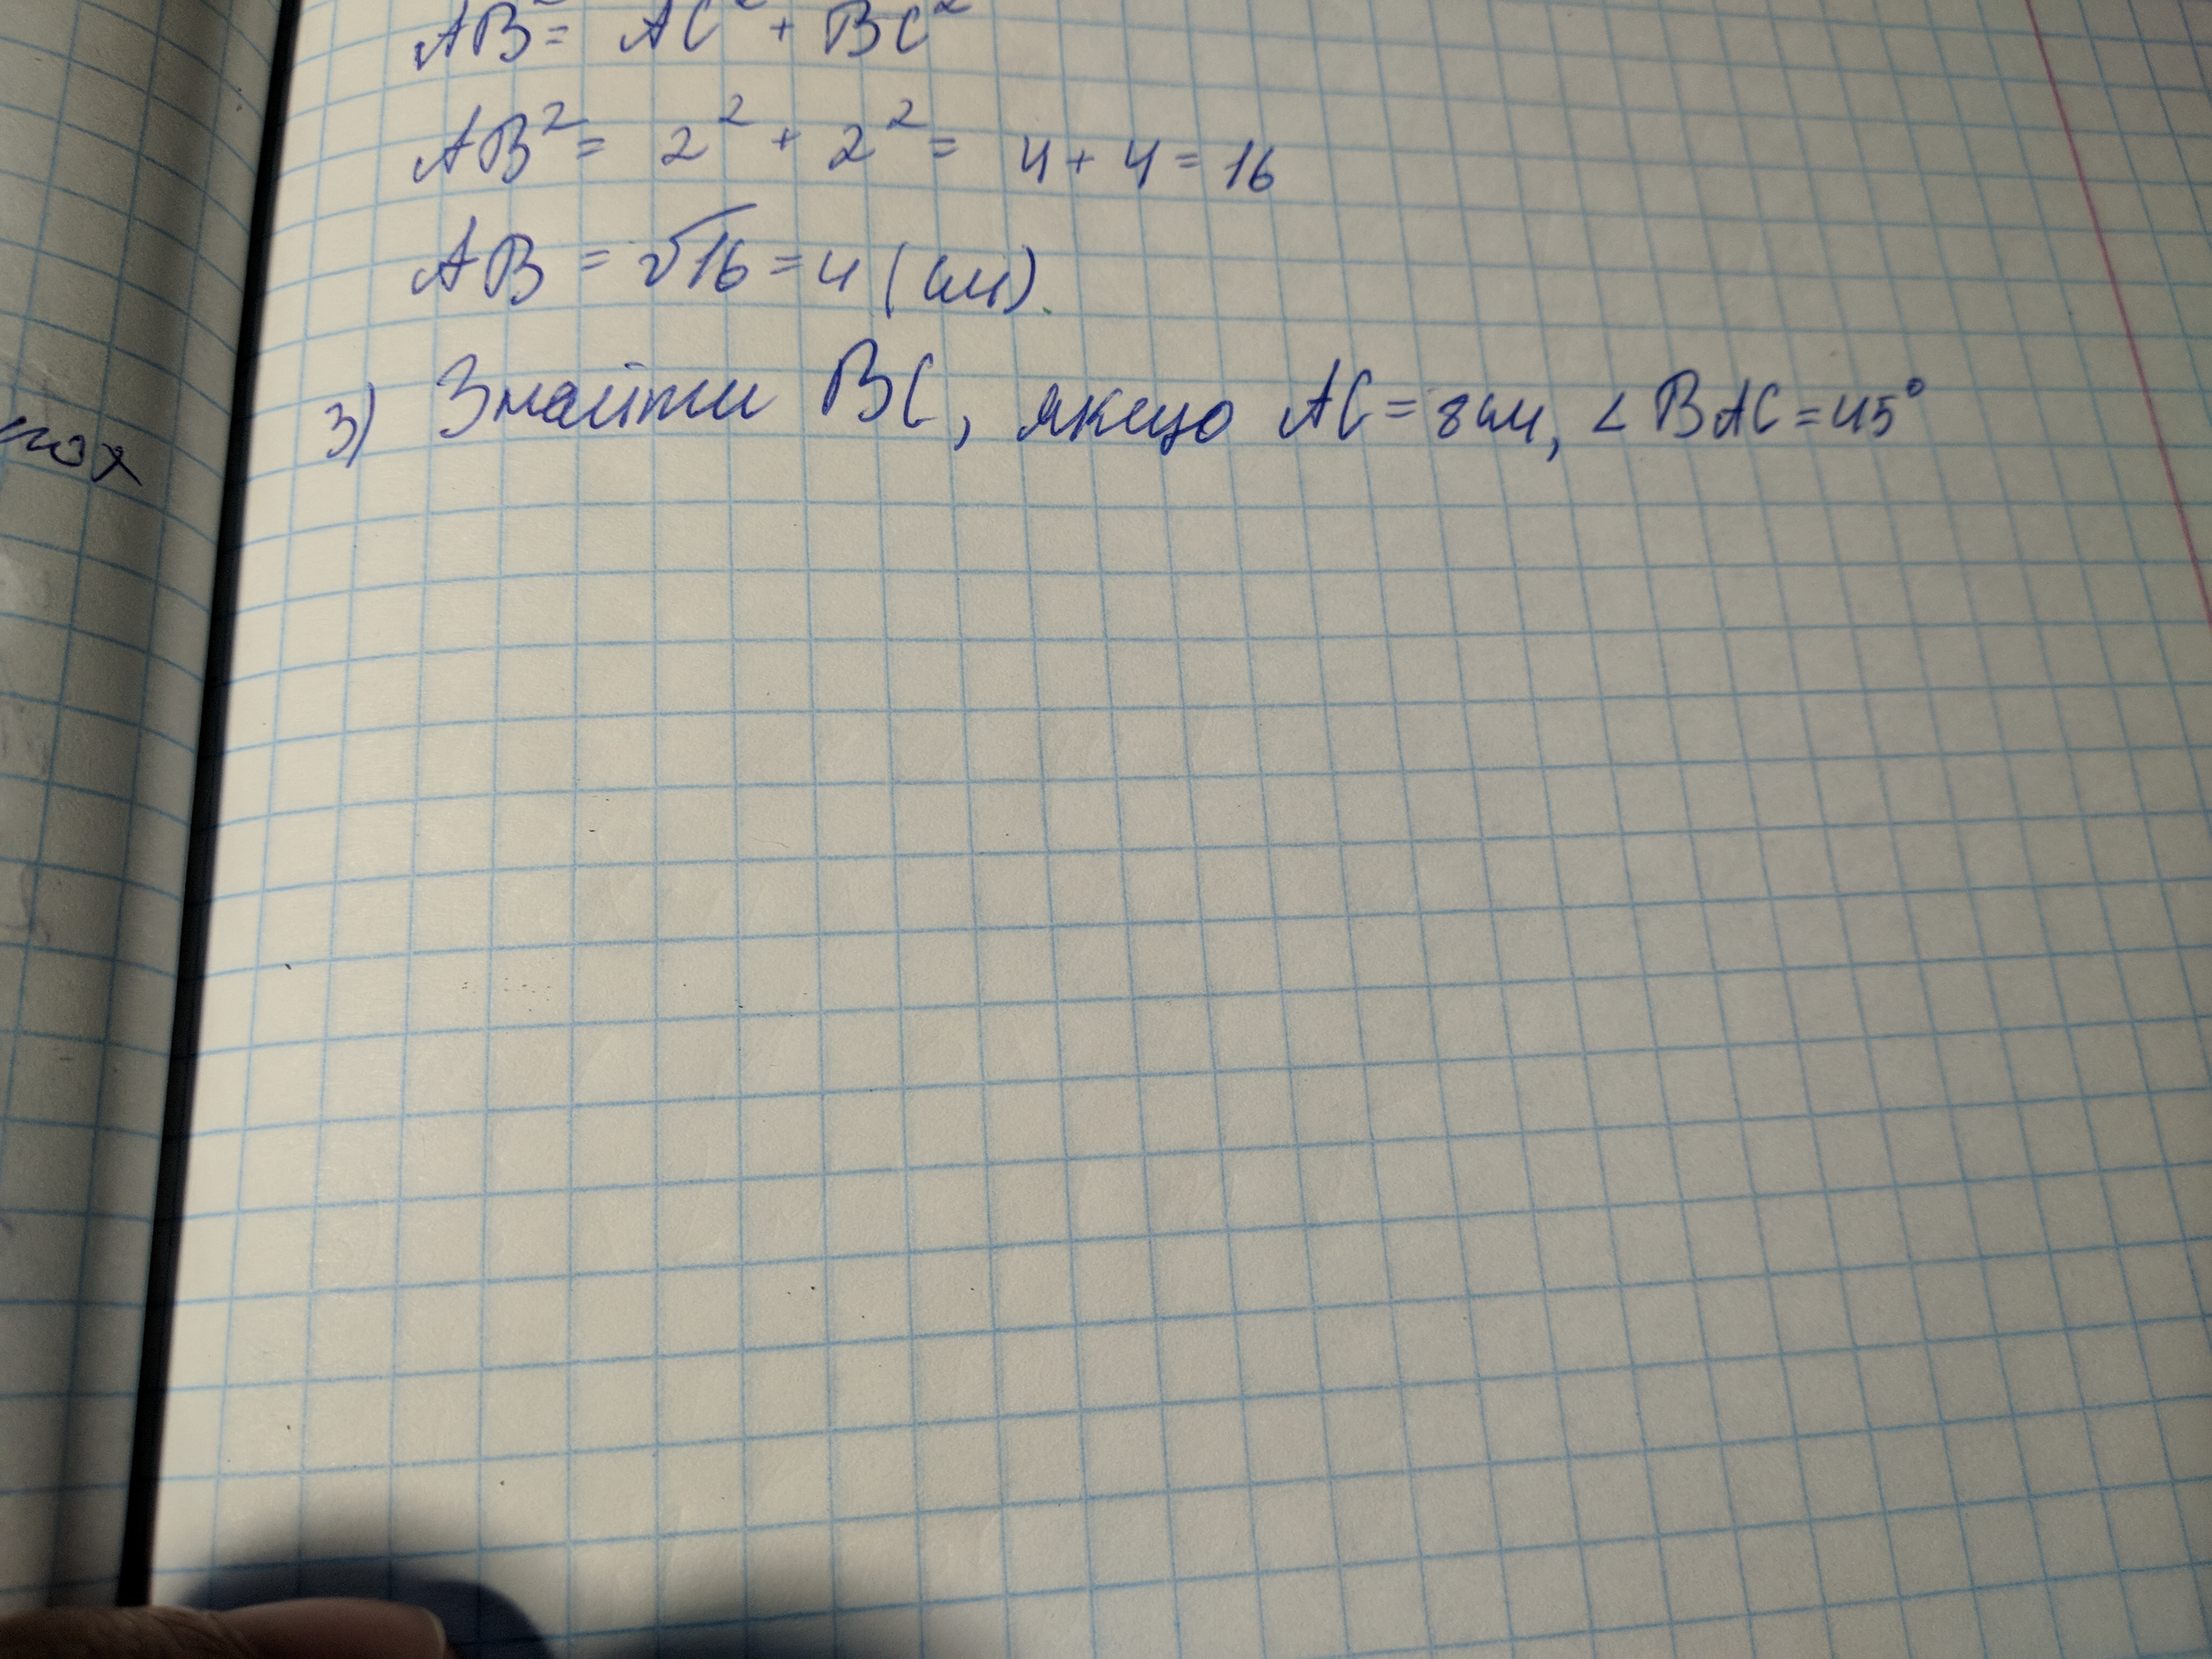 AB² = AC² + BC²
AB² = 2² + 2² = 4 + 4 = 16
AB = √16 = 4 (см).
3) Знайти BC, якщо AC = 8 см, ∠BAC = 45°